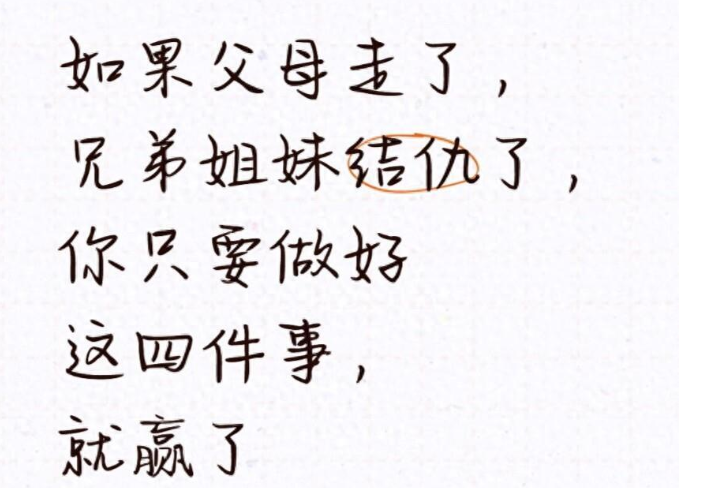 如果父母走了，
兄弟姐妹结仇了，
你只要做好
这四件事，
就赢了